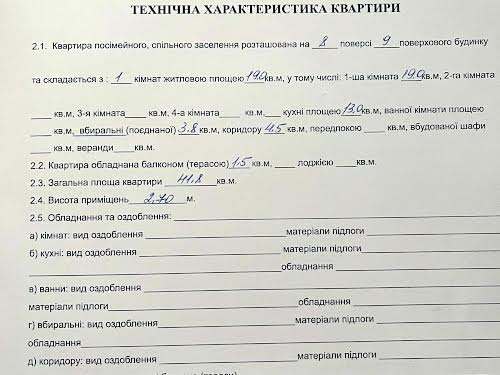 ТЕХНІЧНА ХАРАКТЕРИСТИКА КВАРТИРИ
2.1. Квартира посімейного, спільного заселення розташована на 8 поверсі 9 поверхового будинку
та складається з : 1 кімнат житловою площею 19.0 кв.м, у тому числі: 1-ша кімната 19.0 кв.м, 2-га кімната
____ кв.м, 3-я кімната ____ кв.м, 4-а кімната ____ кв.м, ____ кухні площею 13.0 кв.м, ванної кімнати площею
____ кв.м, вбиральні (поєднаної) 3.8 кв.м, коридору 4.5 кв.м, передпокою ____ кв.м, вбудованої шафи
____ кв.м, веранди ____ кв.м.
2.2. Квартира обладнана балконом (терасою) 1.5 кв.м, ____ лоджією ____ кв.м.
2.3. Загальна площа квартири 41.8 кв.м.
2.4. Висота приміщень 2.70 м.
2.5. Обладнання та оздоблення:
а) кімнат: вид оздоблення ____ матеріали підлоги ____
б) кухні: вид оздоблення ____ матеріали підлоги ____
____ обладнання ____
в) ванни: вид оздоблення ____
матеріали підлоги ____ обладнання ____
г) вбиральні: вид оздоблення ____ матеріали підлоги ____
обладнання ____
д) коридору: вид оздоблення ____ матеріали підлоги ____